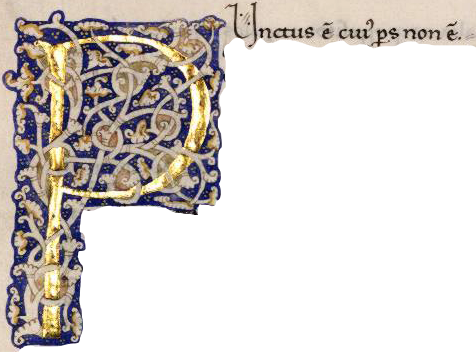 PUnctus ē cuiꝰ ꝑs non ē.